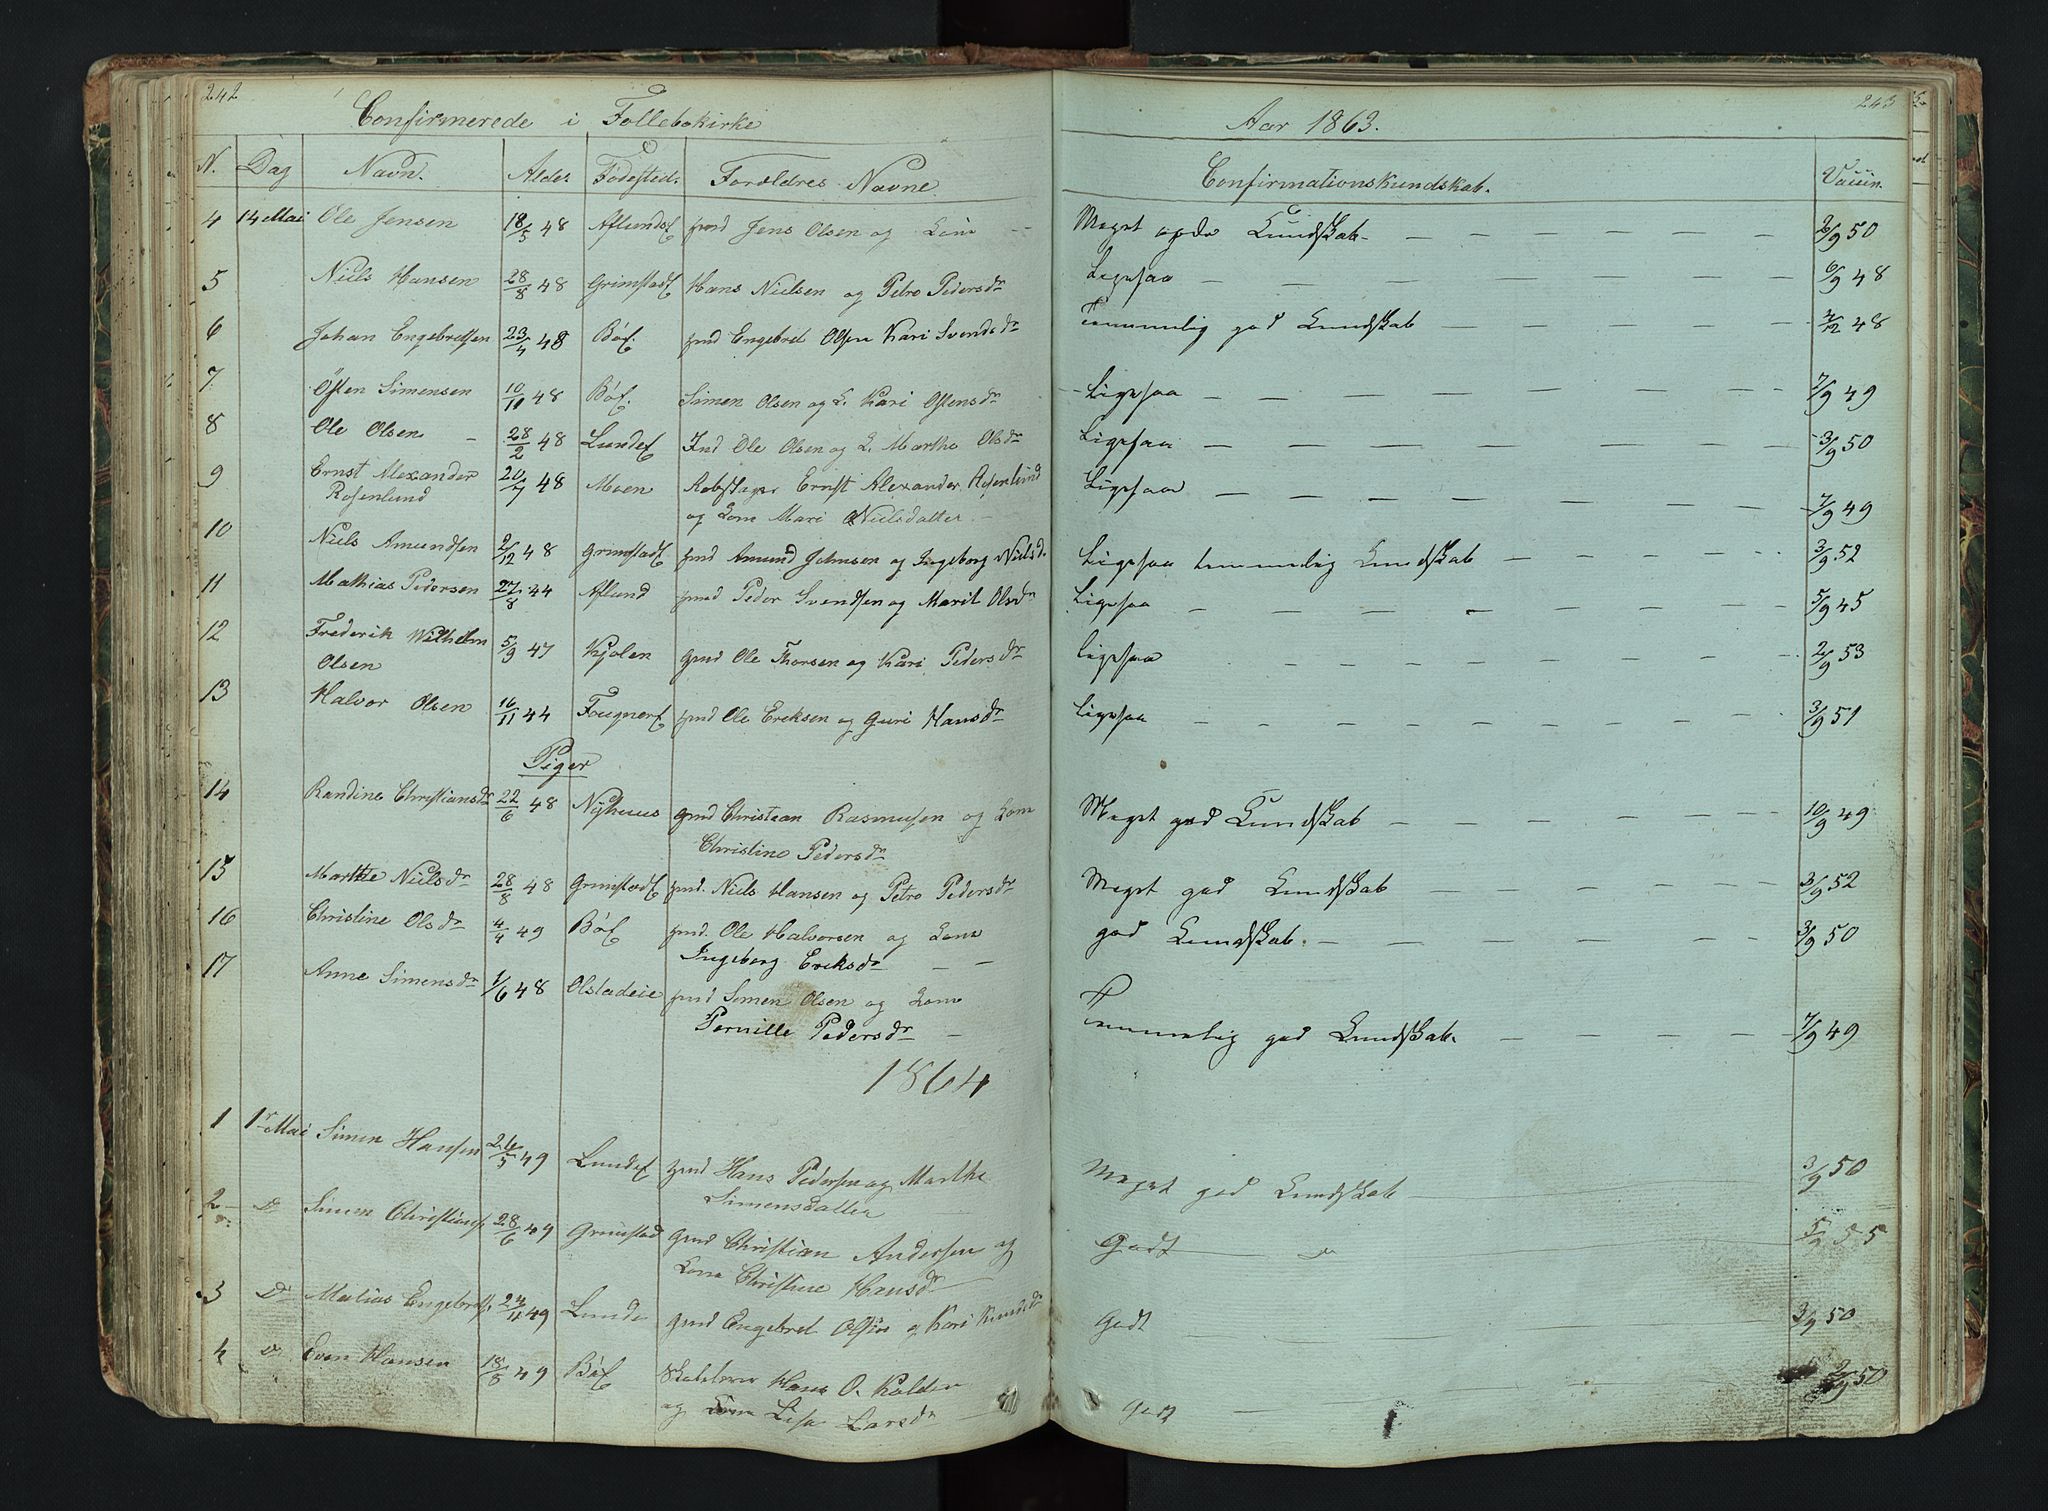 242
Confirmerede i Follebokirke
Aar 1863.
243
N. Dag Navn. Alder Fødested. Forældres Navne Confirmationskundskab. Vaccin.
4 14 Mai Ole Jensen 18/5 48 Aflundsf gmd Jens Olsen og Kone Meget gode Kundskab 2/9 50
5 Niels Hansen 28/8 48 Grimstadf Hans Nielsen og Petro Pedersdr Ligesaa 6/9 48
6 Johan Engebretsen 23/4 48 Bøf. gmd Engebret Olsen Kari Svendsdr Temmelig god Kundskab 4/12 48
7 Østen Simensen 10/11 48 Bøf. Simen Olsen og K. Kari Østensdr Ligesaa 7/9 49
8 Ole Olsen 28/2 48 Lundef Ind Ole Olsen og K. Marthe Olsdr Ligesaa 3/9 50
9 Ernst Alexander 20/7 48 Moen Rebslager Ernst Alexander Rosenlund Ligesaa
Rosenlund og Kone Mari Nielsdatter 7/9 49
10 Niels Amundsen 2/12 48 Grimstadf gmd Amund Johnsen og Ingeborg Nielsd. Ligesaa temmelig Kundskab 3/9 52
11 Mathias Pedersen 27/8 44 Aflund gmd Peder Svendsen og Marit Olsdr Ligesaa 5/9 45
12 Frederik Wilhelm 5/9 47 Kjolen gmd Ole Thorsen og Kari Pedersdr Ligesaa 2/9 53
Olsen
13 Halvor Olsen 16/11 44 Fougnerf gmd Ole Eriksen og Guri Hansdr Ligesaa 3/9 51
Piger
14 Randine Christiansdr 22/6 48 Nyhuus gmd Christian Rasmusen og Kone Meget god Kundskab 10/9 49
Christine Pedersdr
15 Marthe Nielsdr 28/8 48 Grimstadf gmd. Niels Hansen og Petro Pedersdr Meget god Kundskab 3/9 52
16 Christine Olsdr 4/4 49 Bøf gmd. Ole Halvorsen og Kone god Kundskab. 3/9 50
Ingeborg Eriksdr
17 Anne Simensdr 1/6 48 Olstadeie gmd Simen Olsen og Kone
Pernille Pedersdr Temmelig god Kundskab. 7/9 49
1864
1 1r Mai Simen Hansen 26/5 49 Lundef gmd Hans Pedersen og Marthe Meget god Kundskab 3/9 50
Simensdatter
2 Do Simen Christians. 28/6 49 Grimstad gmd Christian Andersen og Godt Do 5/9 55
Kone Christine Hansdr
3 Do Matias Engebrets. 24/11 49 Lunde gmd Engebret Olsen og Kari Knudsdr Godt 3/9 50
4 Do Even Hansen 18/8 49 Bøf Hans O. Kolden 2/9 50
og Kone Lisa Larsdr Godt